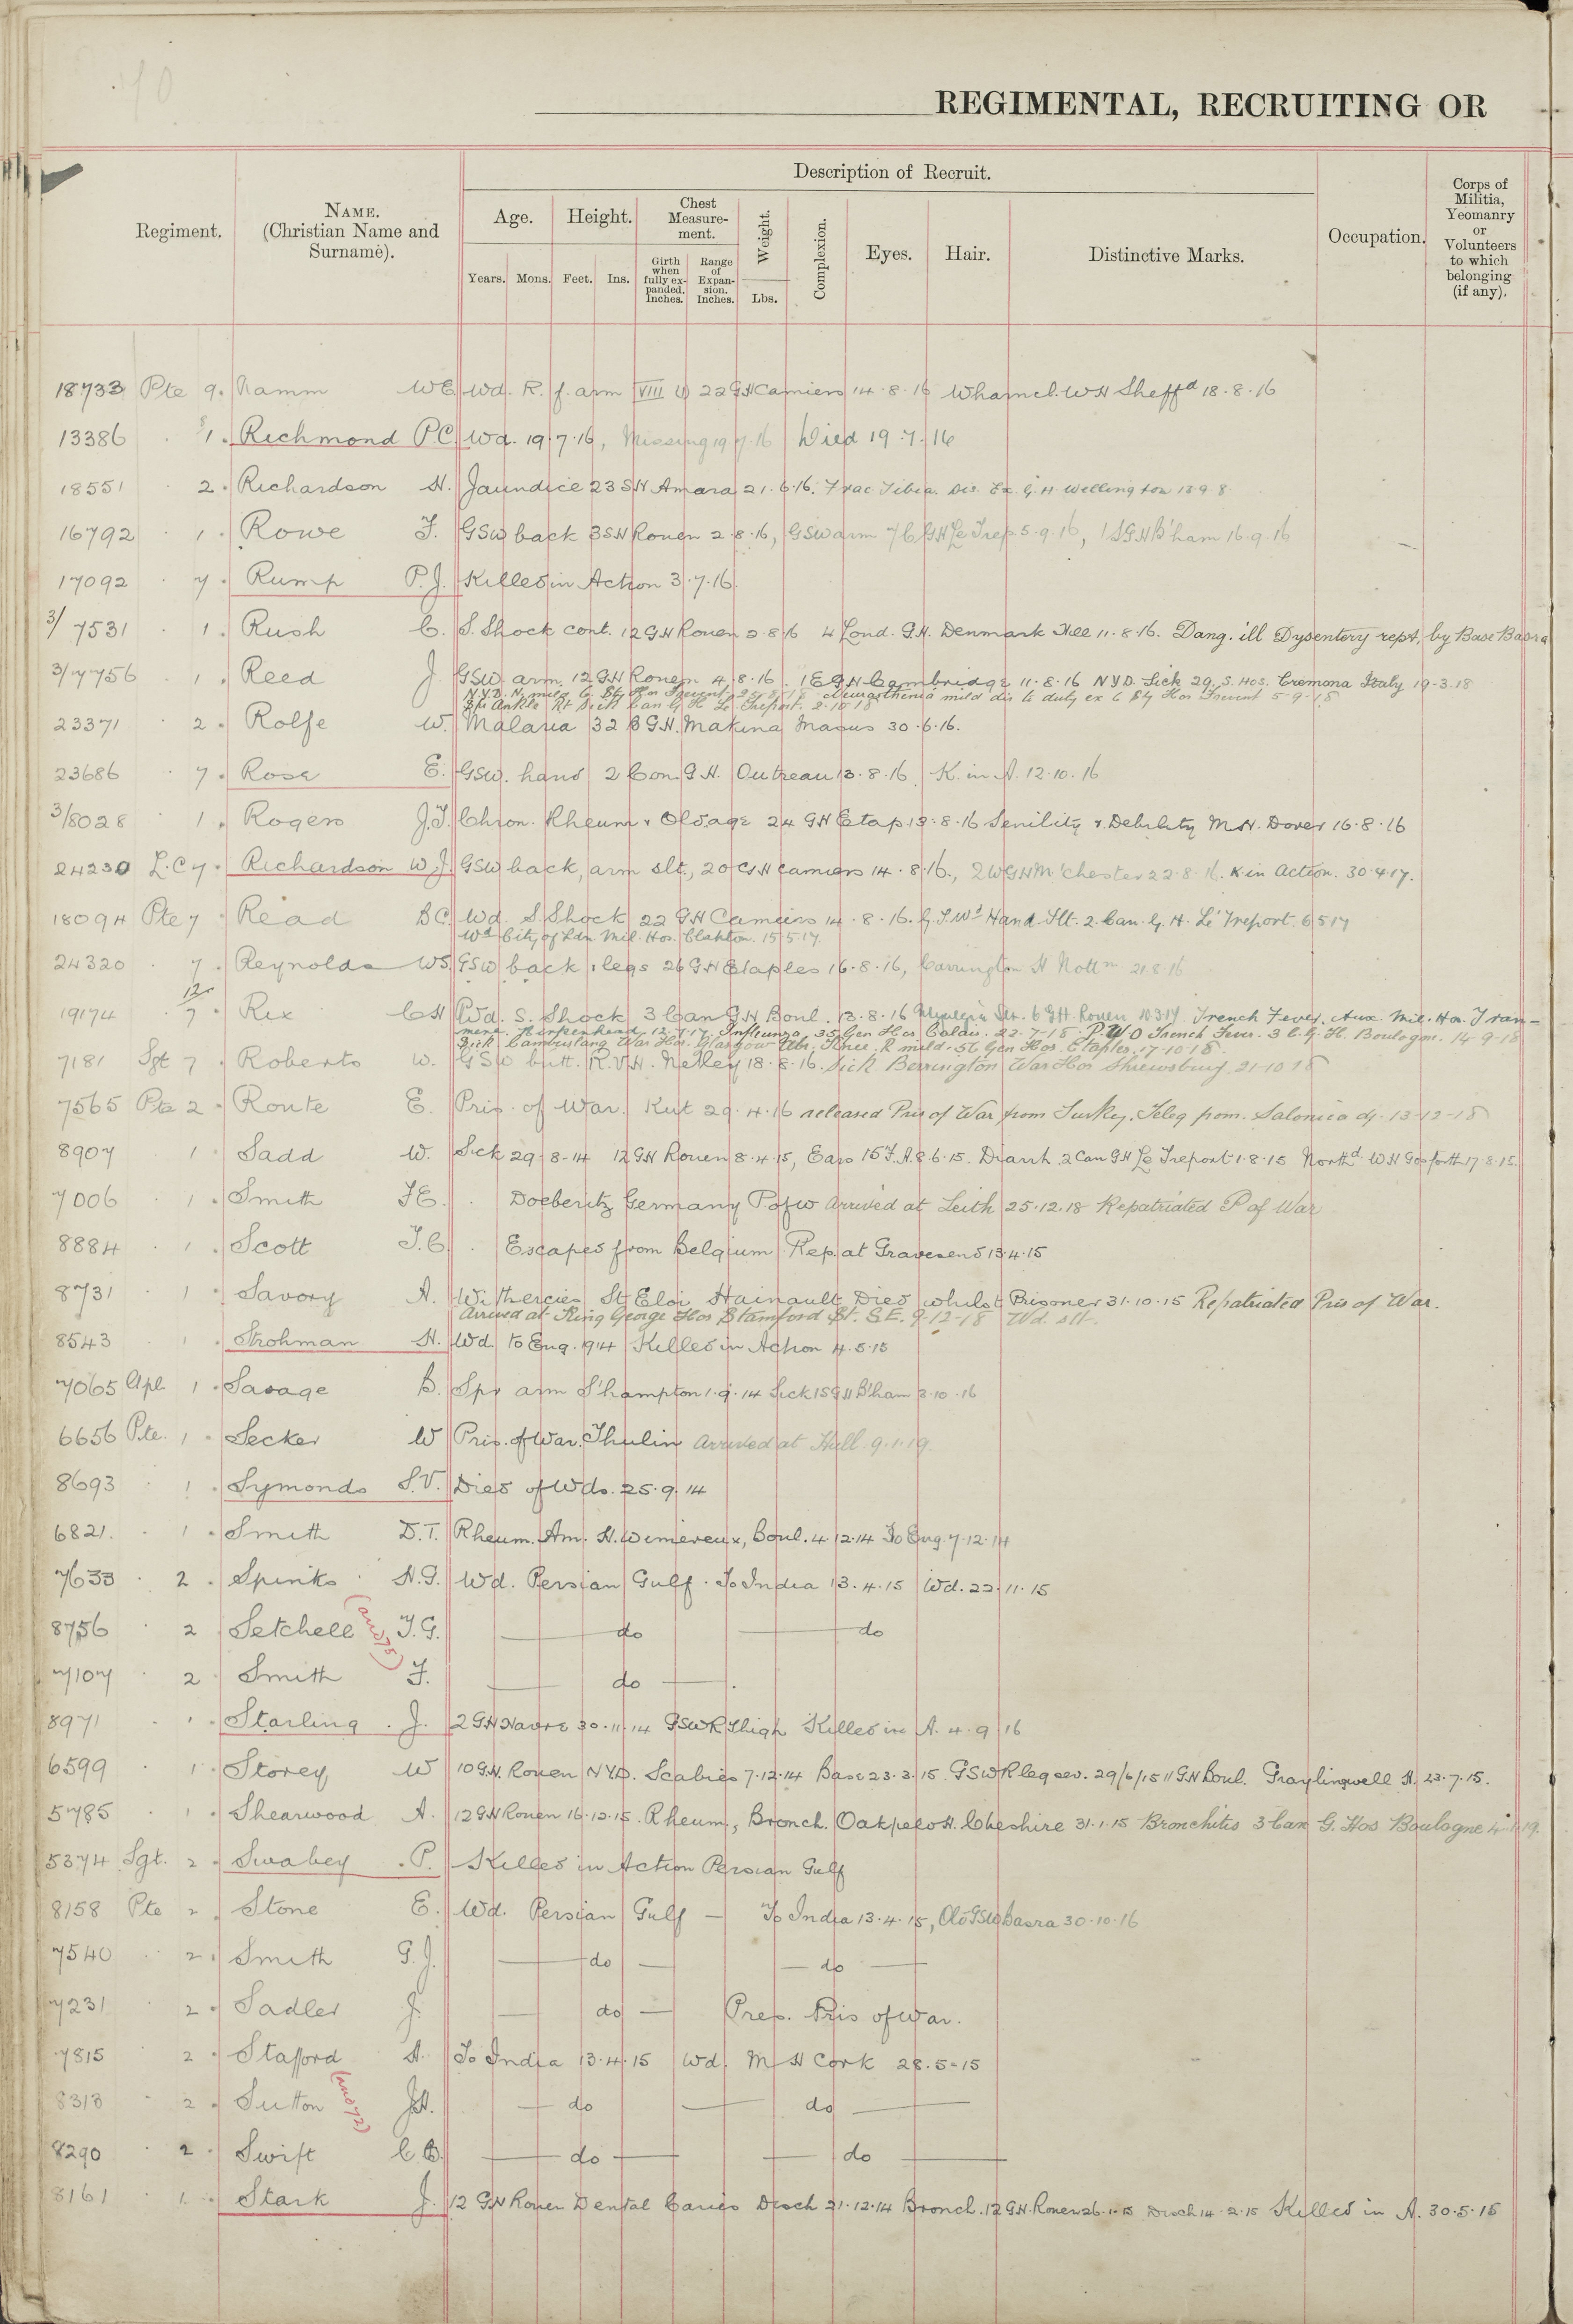 REGIMENTAL, RECRUITING OR
Regiment.
NAME.
(Christian Name and
Surname).
Description of Recruit.
Age.
Height.
Chest
Measure-
ment.
Weight.
Complexion.
Eyes.
Hair.
Distinctive Marks.
Occupation.
Corps of
Militia,
Yeomanry
or
Volunteers
to which
belonging
(if any).
Years.
Mons.
Feet.
Ins.
Girth
when
fully ex-
panded.
Inches.
Range
of
Expan-
sion.
Inches.
Lbs.
18733 Pte 9. Ramm WE Wd. R. f. arm VIII 22 GH Camiers 14.8.16 Wharncl. WH Sheffd 18.8.16
13386 1. Richmond P.C. Wd. 19.7.16, Missing 19.7.16 Died 19.7.16
18551 2. Richardson H. Jaundice 23 SH Amara 21.6.16. Frac. Tibia. Dis. Ex. G.H. Wellington 13.9.8
16792 1. Rowe F. GSW back 3SH Rouen 2.8.16, GSW arm 7 C GH Le Trep. 5.9.16, 1 SGH B'ham 16.9.16
17092 7. Rump P.J. Killed in Action 3.7.16.
3/7531 1. Rush C. S. Shock cont. 12 GH Rouen 2.8.16 4 Lond. G.H. Denmark Hill 11.8.16. Dang. ill Dysentery rept. by Base Basra
3/7756 1. Reed J. GSW arm. 12 GH Rouen 4.8.16. 1 E GH Cambridge 11.8.16 NYD. Sick 29. S. Hos. Cremona Italy 19-3.18
N.Y.D.N. mild 6 Sty Hos Frevent 25-8-18 Neurasthenia mild dis to duty ex 6 Sty Hos Frevent 5-9-18
Spr Ankle Rt Sick Can G H Le Treport. 2-10-18
23371 2. Rolfe W. Malaria 32 B G.H. Makina Masus 30.6.16.
23686 7. Rose E. GSW. hand 2 Con. G.H. Outreau 13.8.16 K. in A. 12.10.16
3/8028 1. Rogers J.T. Chron. Rheum & Old age 24 GH Etap. 13.8.16 Senility & Debility M.H. Dover 16.8.16
24230 L.C 7. Richardson W.J. GSW back, arm slt., 20 GH Camiers 14.8.16., 2 W GH M'chester 22.8.16. K in Action. 30.4.17.
18094 Pte 7 Read B.C. Wd. S Shock 22 GH Camiers 14.8.16. G.S.Wd Hand Slt. 2. Can. G. H. Le Treport. 6 5 17
Wd City of Ldn Mil. Hos. Clakton. 15 5 17.
24320 7. Reynolds WS. GSW back & legs 26 GH Etaples 16.8.16, Carrington H Nottm 21.8.16
12
19174 7. Rix CH Wd. S. Shock 3 Can GH Boul. 13.8.16 6 GH. Rouen 10 3 17. Trench Fever. Aux. Mil. Hos. Tran-
mere. Birkenhead, 12.7.17. Influenza, 35 Gen Hos Calais. 22-7-18. P.U.O Trench Fever. 3 C. G. H. Boulogne. 14-9-18
Sick. Cambuslang War Hos. Glasgow Abr. Knee. R mild. 56 Gen Hos. Etaples. 17-10-18.
7181 Sgt 7 Roberts W. GSW butt. R.V.H. Netley 18.8.16. Sick Berrington War Hos Shrewsbury 21-10 18
7565 Pte 2. Route E. Pris. of War. Kut 29.4.16 released Pris of War from Turkey. Teleg from. Salonica dj. 13-12-18
8907 1. Sadd W. Sick 29.8-14 12 GH Rouen 8.4.15, Ears 15 F.A. 8.6.15. Diarrh. 2 Can GH Le Treport 1.8.15 Northd WH Gosforth 17.8.15.
7006 1. Smith F.E. Doeberitz Germany P of W Arrived at Leith 25.12.18 Repatriated P of War
8884 1. Scott T.C. Escaped from Belgium Rep. at Gravesend 13.4.15
8731 1. Savory A. Withercies St Eloi Hainault Died whilst Prisoner 31.10.15 Repatriated Pris of War.
Arrived at King George Hos Stamford St. S.E. 9-12-18 Wd. slt.
8543 . Strohman H. Wd. to Eng. 1914 Killed in Action 4.5.15
7065 Cpl 1. Savage B. Spr arm S'hampton 1.9.14 Sick 1SGH B'ham 3.10.16
6656 Pte. 1. Secker W Pris. of War. Thulin Arrived at Hull 9.1.19.
8693 1. Symonds S.V. Died of Wds. 25.9.14
6821. 1. Smith D.T. Rheum. Am. H. Wimereux, Boul. 4.12.14 To Eng. 7.12.14
7633 2. Spinks H.G. Wd. Persian Gulf. To India 13.4.15 Wd. 22.11.15
8756 2 Setchell T.G. do do
7107 2 Smith F. do
8971 1. Starling J. 2 GH Havre 30.11.14 GSW R Thigh Killed in A. 4.9.16
6599 1. Storey W 10 G.H. Rouen NYD. Scabies 7.12.14 Base 23.3.15. GSW R leg sev. 29/6/15 11 GH Boul. Graylingwell H. 23.7.15.
5785 1. Shearwood A. 12 GH Rouen 16.12.15. Rheum., Bronch. Oakfield H. Cheshire 31.1.15 Bronchitis 3 Can G. Hos Boulogne 4.1.19.
5374 Sgt. 2. Swabey P. Killed in Action Persian Gulf
8158 Pte 2 Stone E. Wd. Persian Gulf — To India 13.4.15, Old GSW Basra 30.10.16
7540 2. Smith G.J. do do
7231 2. Sadler J. do Pres. Pris of War.
7815 2. Stafford A. To India 13.4.15 Wd. M H Cork 28.5-15
8313 2. Sutton J.H. do do
8290 2. Swift C.B. do do
8161 1. Stark J. 12 GH Rouen Dental Caries Disch 21.12.14 Bronch. 12 G.H. Rouen 26.1.15 Disch 14.2.15 Killed in A. 30.5.15